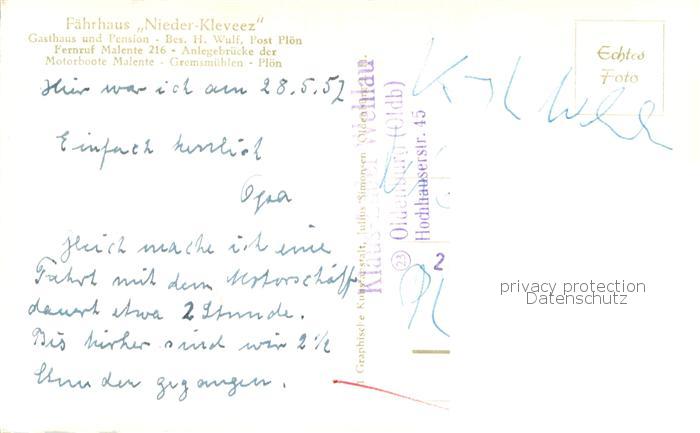 Fährhaus „Nieder-Kleveez"
Gasthaus und Pension - Bes. H. Wulf, Post Plön
Fernruf Malente 216 - Anlegebrücke der
Motorboote Malente - Gremsmühlen - Plön
Hier war ich am 28.5.57
Einfach herrlich
Opa
Gleich mache ich eine
Fahrt mit dem Motorschiff
dauert etwa 2 Stunde.
Bis hierher sind wir 2½
Stunden gegangen.
Graphische Kunstanstalt, Julius Simonsen, Oldenburg
Wehlau
(23) Oldenburg (Oldb)
Hochhauserstr. 45
2
Echtes
Foto
privacy protection
Datenschutz